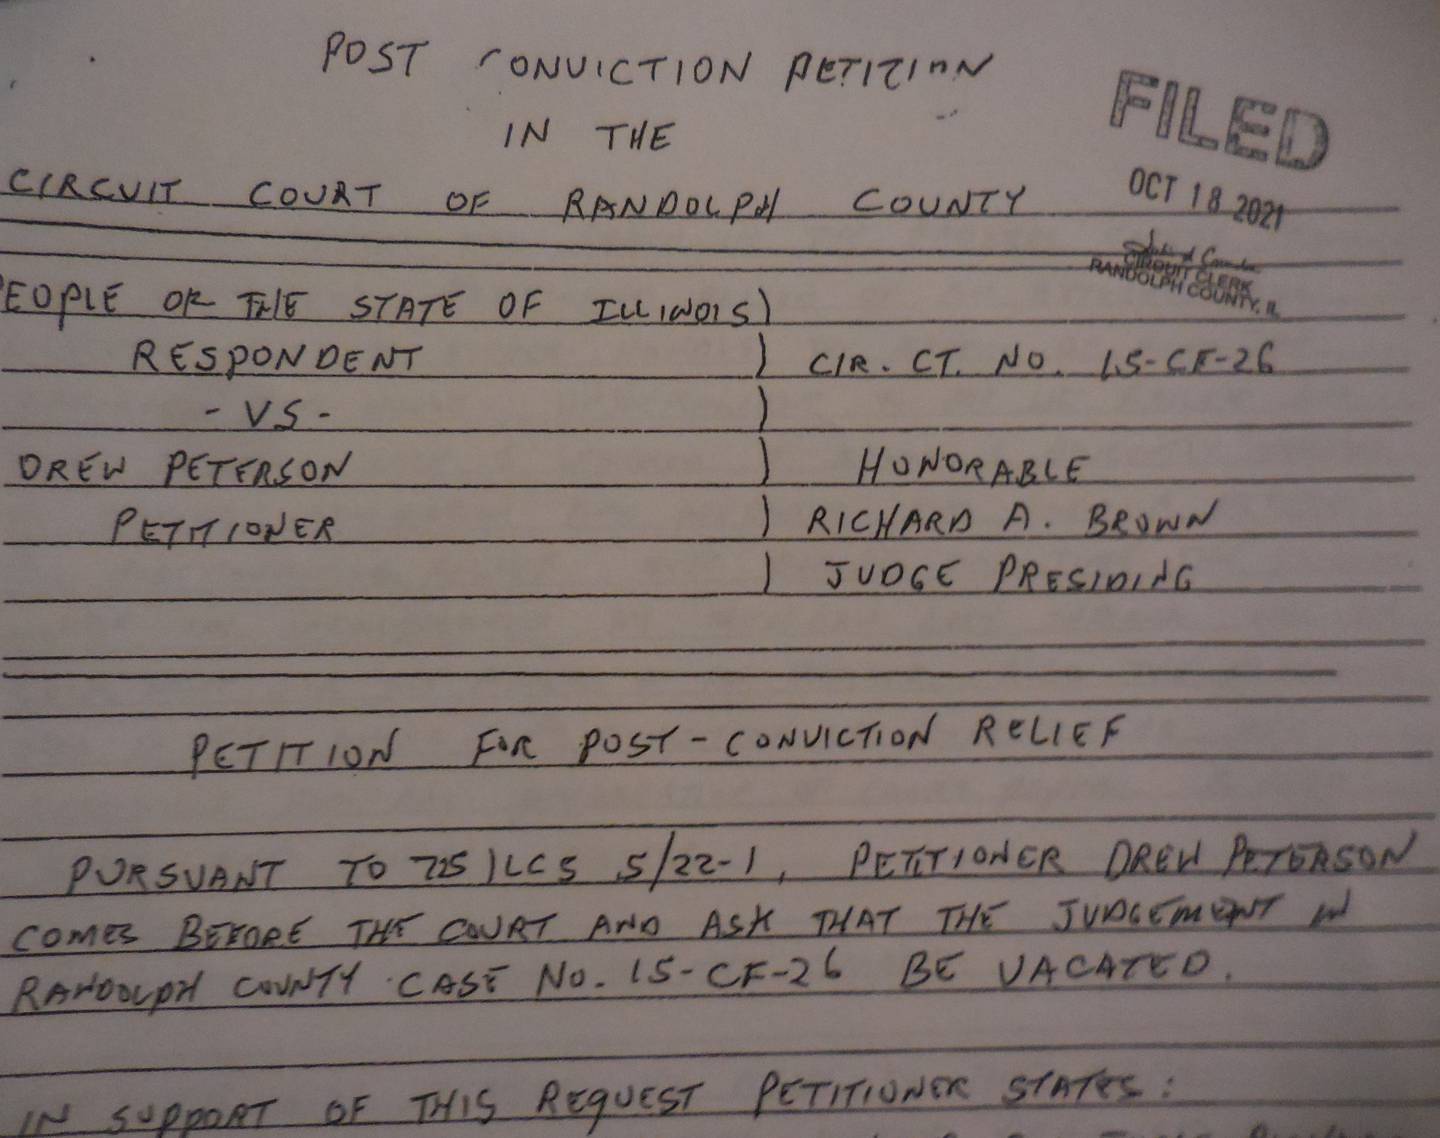 POST CONVICTION PETITION
IN THE
FILED
CIRCUIT COURT OF RANDOLPH COUNTY
OCT 18 2021
CIRCUIT CLERK
RANDOLPH COUNTY, IL
PEOPLE OF THE STATE OF ILLINOIS )
RESPONDENT ) CIR. CT. NO. 15-CF-26
- VS - )
DREW PETERSON ) HONORABLE
PETITIONER ) RICHARD A. BROWN
) JUDGE PRESIDING
PETITION FOR POST-CONVICTION RELIEF
PURSUANT TO 725 ILCS 5/22-1, PETITIONER DREW PETERSON
COMES BEFORE THE COURT AND ASK THAT THE JUDGEMENT IN
RANDOLPH COUNTY CASE NO. 15-CF-26 BE VACATED.
IN SUPPORT OF THIS REQUEST PETITIONER STATES: